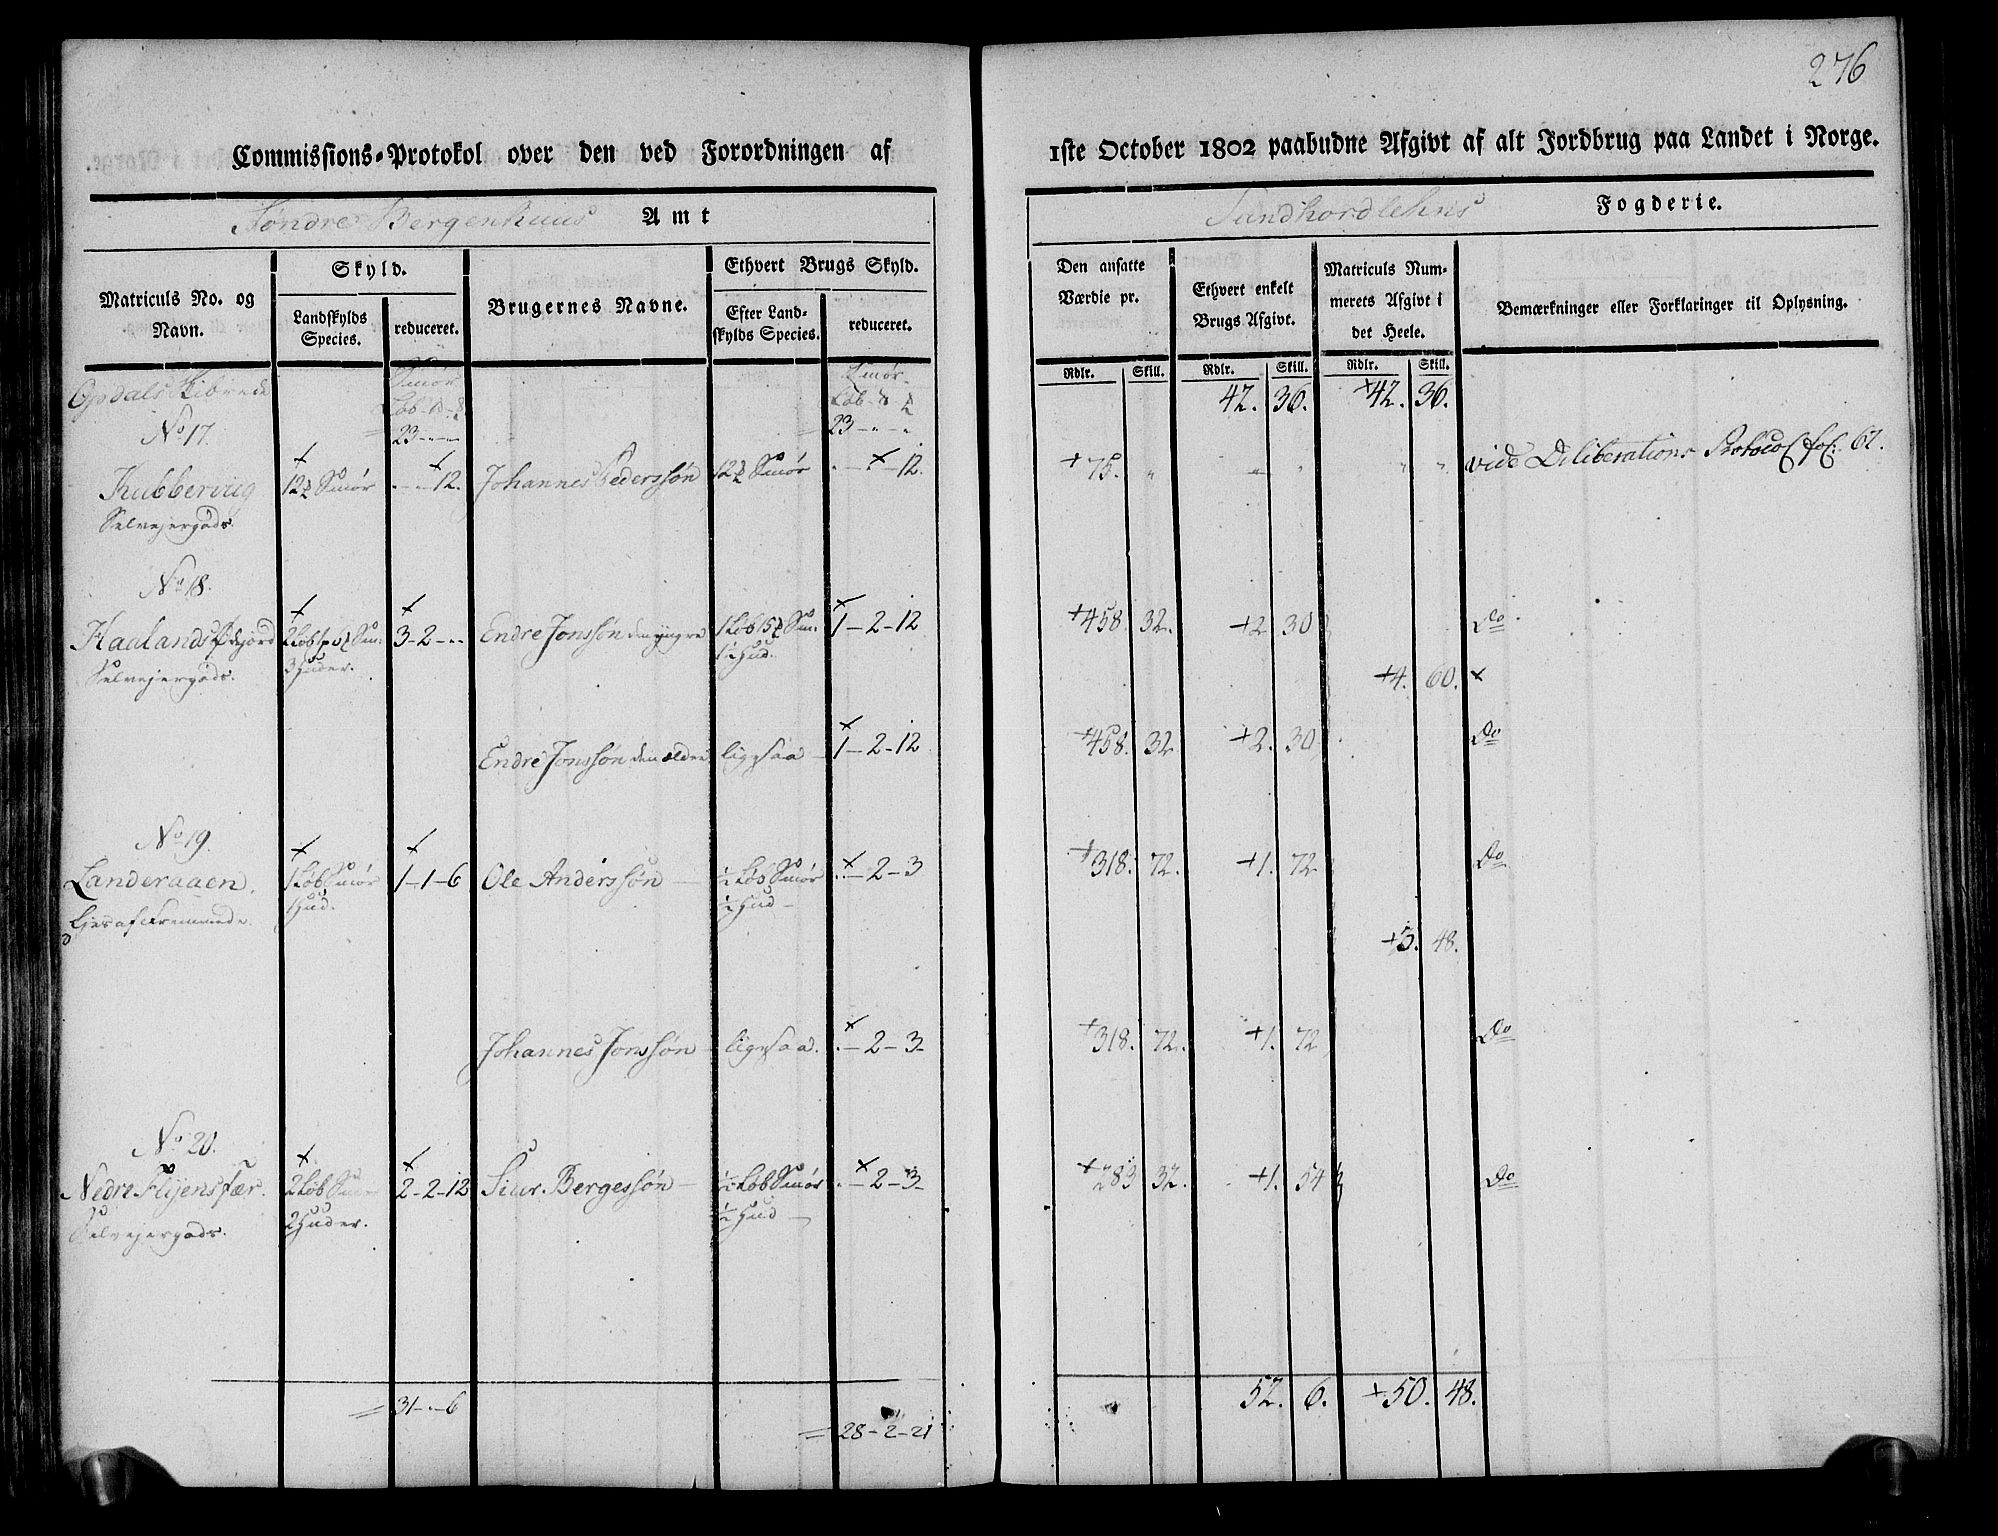 276
Commissions-Protokol over den ved Forordningen af 1ste October 1802 paabudne Afgivt af alt Jordbrug paa Landet i Norge.
Søndre Bergenhuus Amt
Sundhordlehns Fogderie.
Matriculs No. og Navn.
Skyld.
Landskylds Species.
reduceret.
Brugernes Navne.
Ethvert Brugs Skyld.
Efter Landskylds Species.
reduceret.
Den ansatte Værdie pr.
Ethvert enkelt Brugs Afgivt.
Matriculs Nummerets Afgivt i det Heele.
Bemærkninger eller Forklaringer til Oplysning.
Rdlr. Skill. Rdlr. Skill. Rdlr. Skill.
Opdals Skibrede
Smør Smør
Løb Løb
23 - " - " 23 - " - " 42. 36. +42. 36.
No 17.
Kubberviig 12 Smør " - " - 12. Johannes Pederssøn 12 Smør " - " - 12. +75. " " " " " vide Deliberations Protocol fol: 67.
Selvejergods.
No 18.
Haaland 3 - 2 - " Endre Jonssøn den yngre 1 - 2 - 12 +458. 32. +2. 30 Do.
Selvejergods. 3 Huder. Hud.
+4. 60. x
Endre Jonssøn den ældre ligesaa 1 - 2 - 12 +458. 32 +2. 30 Do
No 19.
Landeraaen. 1 Løb Smør 1 - 1 - 6 Ole Anderssøn ½ Løb Smør " - 2 - 3 +318. 72. +1. 72 Do
Ejes af Fremmede. 1 Hud. ½ Hud
+3. 48.
Johannes Jonssøn ligesaa. " - 2 - 3 +318. 72. +1. 72 Do
No 20.
Nedre Flyensfær. 2 Løb Smør 2 - 2 - 12 Siur Bergessøn ½ Løb Smør " - 2 - 3 +283 32. +1. 54 Do
Selvejergods. 2 Huder. ½ Hud
31 - " - 6 28 - 2 - 21 52. 6. +50. 48.